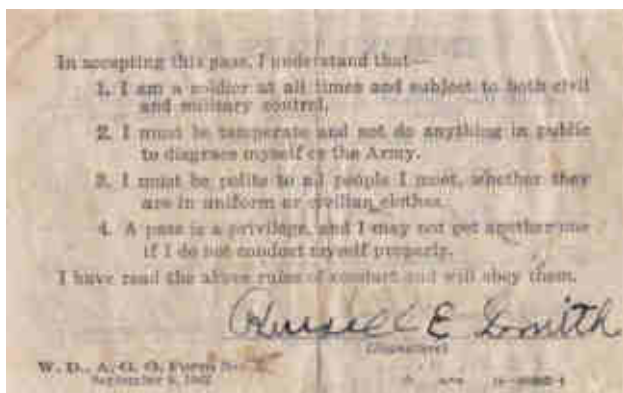 In accepting this pass, I understand that—
1. I am a soldier at all times and subject to both civil
and military control.
2. I must be temperate and not do anything in public
to disgrace myself or the Army.
3. I must be polite to all people I meet, whether they
are in uniform or civilian clothes.
4. A pass is a privilege, and I may not get another one
if I do not conduct myself properly.
I have read the above rules of conduct and will obey them.
Russell E Smith
(Signature)
W. D., A. G. O. Form No.
September